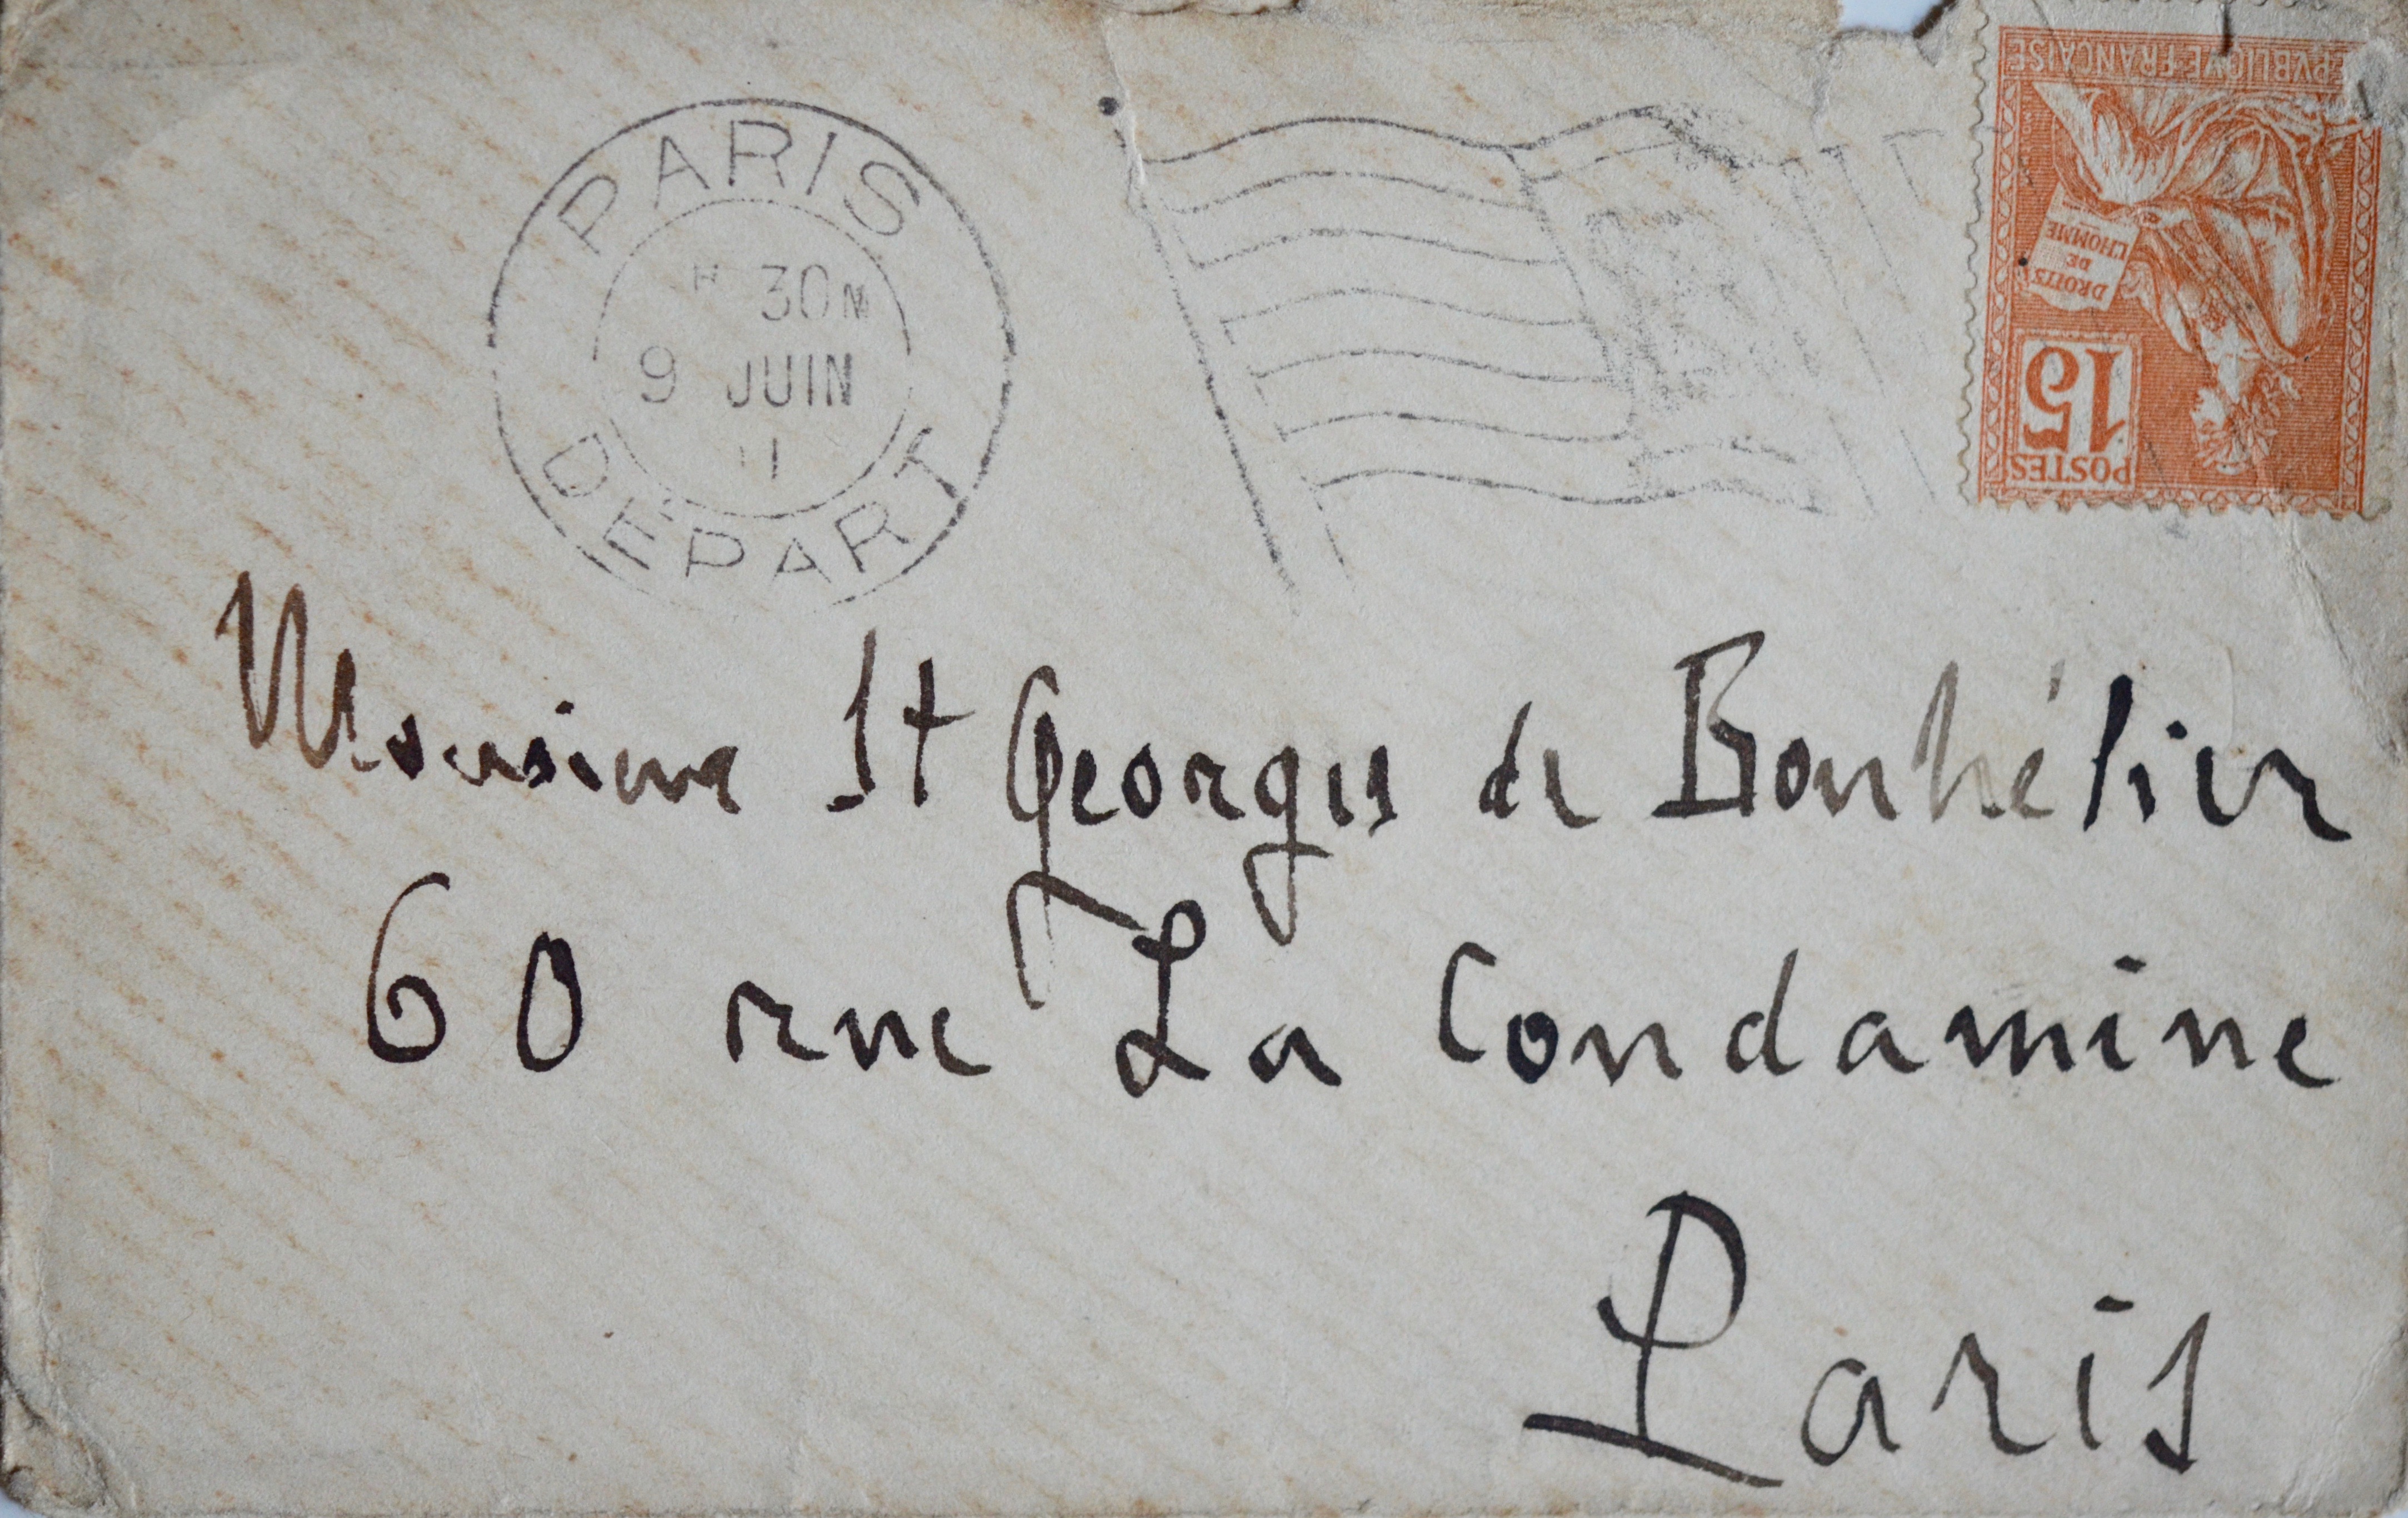 PARIS
H 30 M
9 JUIN
11
DEPART
REPVBLIQVE FRANÇAISE
DROITS
DE
L'HOMME
15
POSTES
Monsieur St Georges de Bouhélier
60 rue La Condamine
Paris